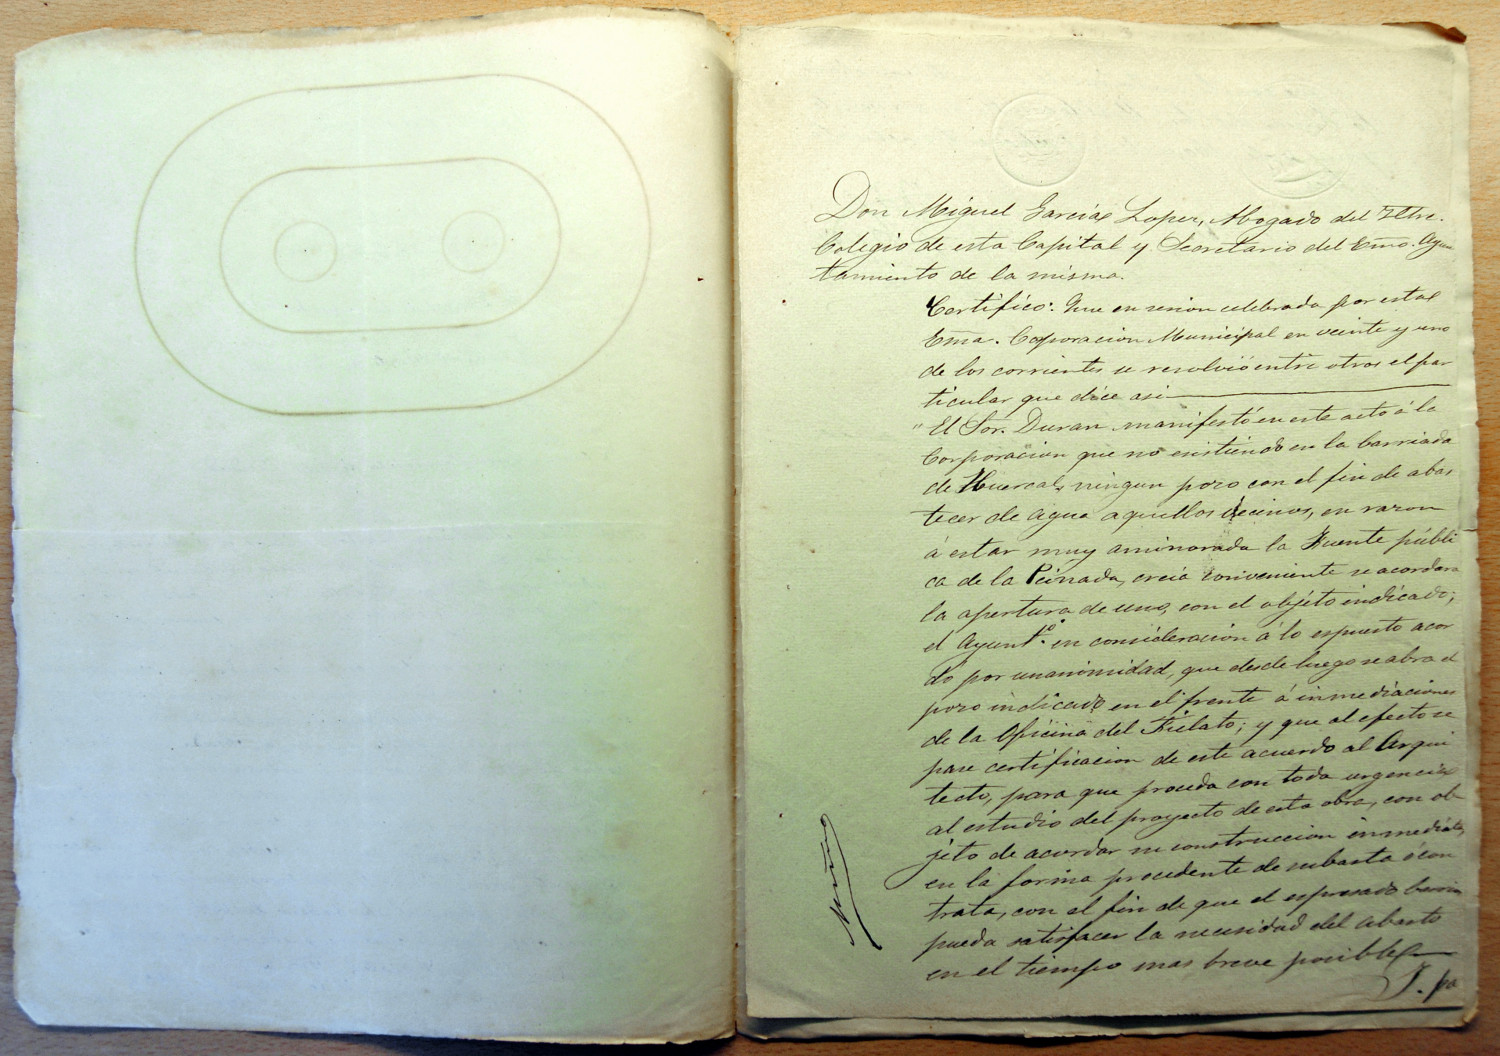 Don Miguel Garcia Lopez, Abogado del Iltre.
Colegio de esta Capital y Secretario del Emo. Ayun
tamiento de la misma.
Certifico: Que en sesion celebrada por esta
Ema. Corporacion Municipal en veinte y uno
de los corrientes se resolvió entre otros el par
ticular que dice asi
"El Sor. Duran manifestó en este acto á la
Corporacion que no existiendo en la barriada
de Huercal, ningun pozo con el fin de abas
tecer de agua aquellos vecinos, en razon
á estar muy aminorada la Fuente públi
ca de la Peinada, creia conveniente se acordara
la apertura de uno, con el objeto indicado;
el Ayunto. en consideracion á lo espuesto acor
dó por unanimidad, que desde luego se abra el
pozo indicado en el frente á inmediaciones
de la Oficina del Fielato; y que al efecto se
pase certificacion de este acuerdo al Arqui
tecto, para que proceda con toda urgencia
al estudio del proyecto de esta obra, con ob
jeto de acordar su construccion inmediata,
en la forma procedente de subasta ó con
trata, con el fin de que el espresado barrio
pueda satisfacer la necesidad del abasto
en el tiempo mas breve posible
Y. pa